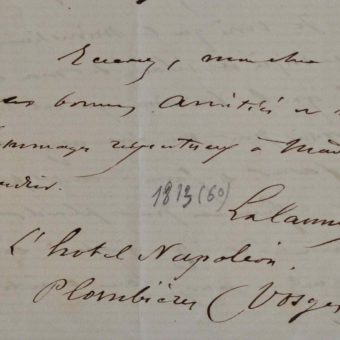 Recevez, mon cher
mes bonnes amitiés et
hommages respectueux à Mad
1813 (60)
Lalanne
L'hotel Napoléon.
Plombières (Vosges